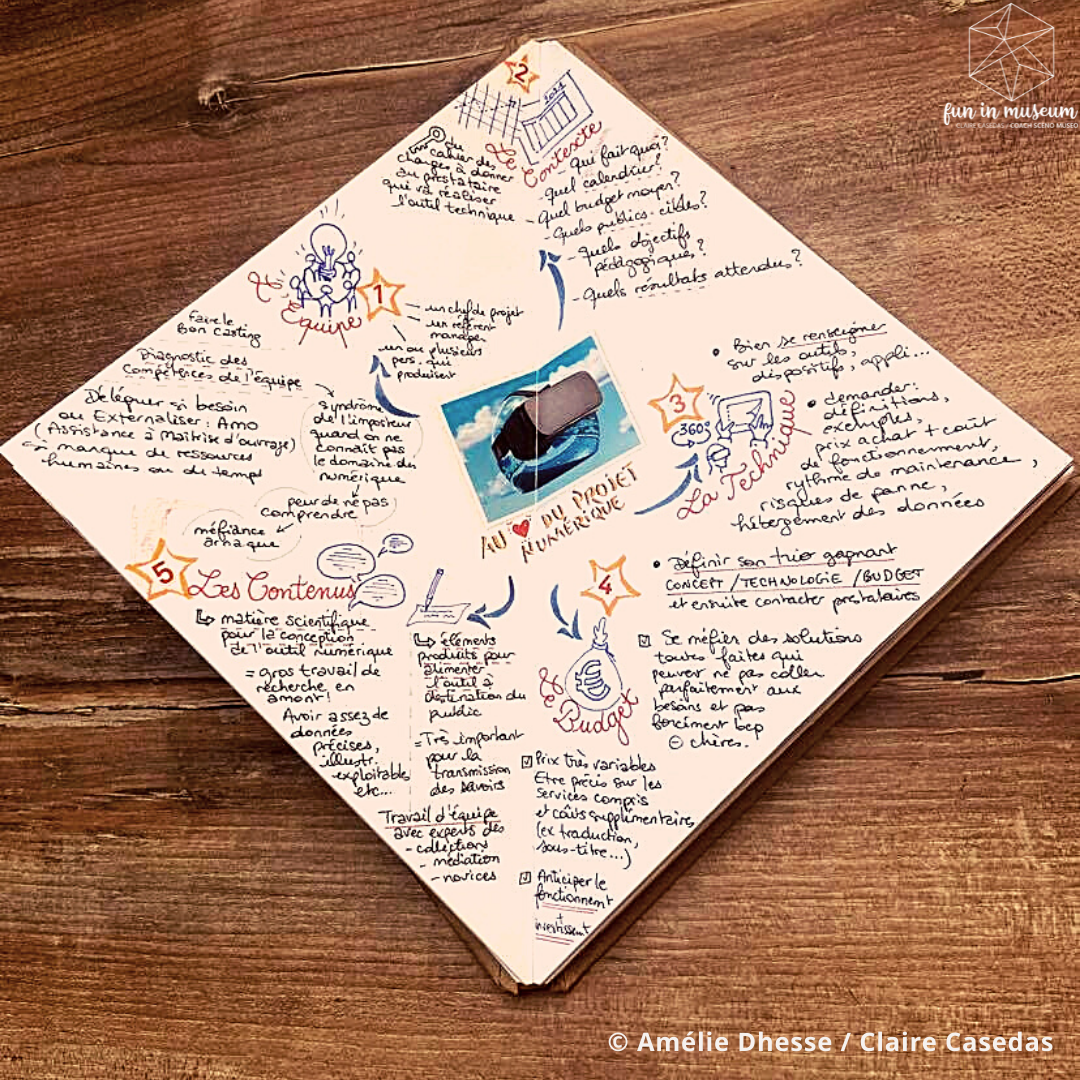 fun in museum
CLAIRE CASEDAS / COACH SCÉNO MUSÉO
AU ❤ DU PROJET
NUMÉRIQUE
1
L'Équipe
- un chef de projet
- un référent
manager
- un ou plusieurs
pers. qui
produisent
Faire le
Bon casting
Diagnostic des
compétences de l'équipe
Déléguer si besoin
ou Externaliser : Amo
(Assistance à Maîtrise d'ouvrage)
manque de ressources
humaines ou de temps
syndrome
de l'imposteur
quand on ne
connait pas
le domaine du
numérique
peur de ne pas
comprendre
méfiance
arnaque
2
2021
Le Contexte
du
cahier des
charges à donner
au prestataire
qui va réaliser
l'outil technique
- qui fait quoi?
- Quel calendrier?
- Quel budget moyen?
- Quels publics-cibles?
- Quels objectifs
pédagogiques?
- Quels résultats attendus?
3
360°
La Technique
• Bien se renseigner
sur les outils,
dispositifs, appli...
• demander:
définitions,
exemples,
prix achat + coût
de fonctionnement,
rythme de maintenance,
risques de panne,
hébergement des données
• Définir son trio gagnant
CONCEPT / TECHNOLOGIE / BUDGET
et ensuite contacter prestataires
4
€
Le Budget
☑ Se méfier des solutions
toutes-faites qui
peuvent ne pas coller
parfaitement aux
besoins et pas
forcément bcp
⊖ chères.
☑ Prix très variables
Etre précis sur les
services compris
et coûts supplémentaires
(ex traduction,
sous-titre...)
☑ Anticiper le
fonctionnement
+
investissemt
5
Les Contenus
↳ matière scientifique
pour la conception
de l'outil numérique
= gros travail de
recherche en
amont!
Avoir assez de
données
précises,
illustr.
exploitables
etc...
↳ éléments
produits pour
alimenter
l'outil à
destination du
public
= Très important
pour la
transmission
des savoirs
Travail d'équipe
avec experts des
- collections
- médiation
- novices
© Amélie Dhesse / Claire Casedas